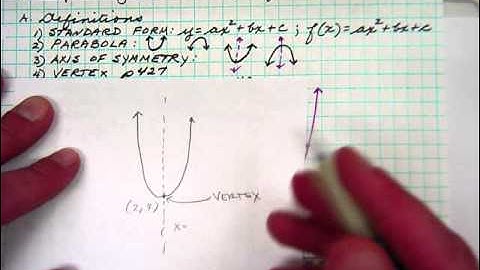 A. Definitions
1) STANDARD FORM: y=ax²+bx+c ; f(x)=ax²+bx+c
2) PARABOLA:
3) AXIS OF SYMMETRY:
4) VERTEX p427
VERTEX
x=